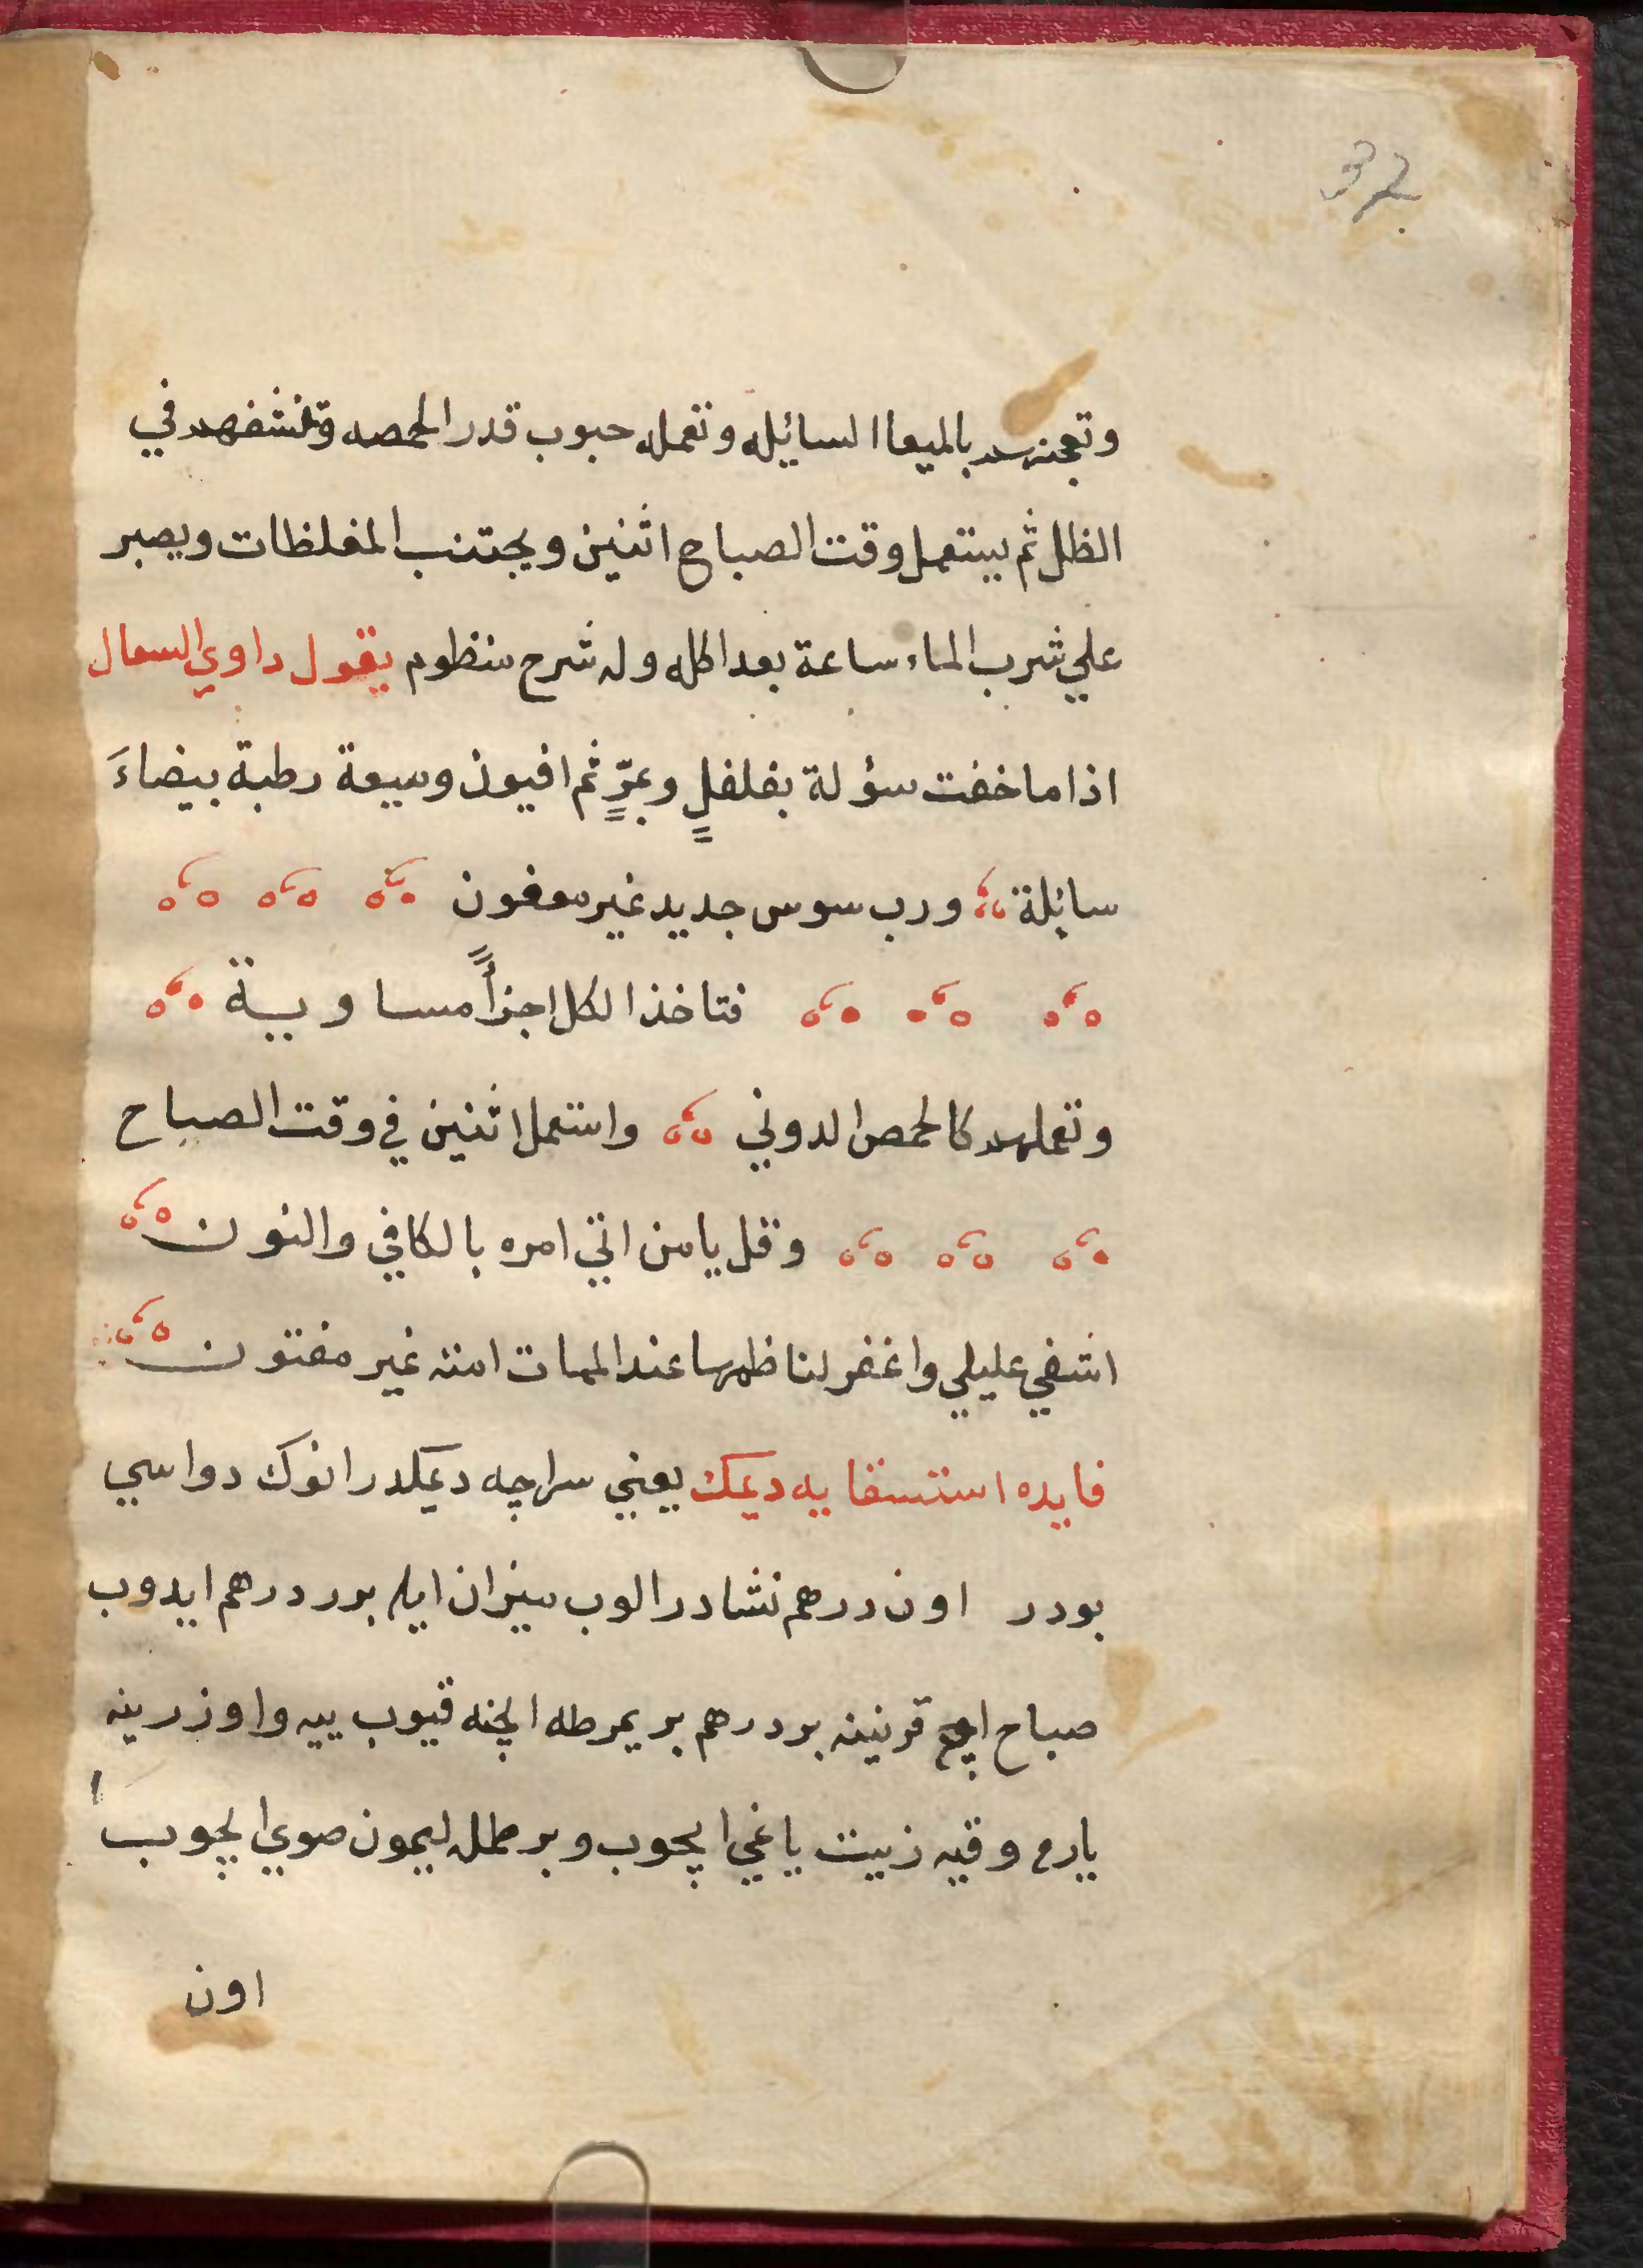 32
وتعجنهم بالميعا السايله وتعمله حبوب قدر الحمصه وتنشفهم في
الظل ثم يستعمل وقت الصباح اثنين ويجتنب المغلظات ويصبر
علي شرب الماء ساعة بعد اكله وله شرح منظوم يقول داوي السعال
اذا ما خفت سؤلة بفلفلٍ ومرٍّ ثم افيون وميعة رطبة بيضاءَ
سائلة ورب سوس جديد غير معفون
فتاخذ الكل اجزأً مساوية
وتعملهم كالحمص الدوني واستعمل اثنين في وقت الصباح
وقل يا من اتي امره بالكافي والنون
اشفي عليلي واغفر لناظمها عند الممات امته غير مفتون
فايده استسقايه ديمك يعني سراچه ديمكدر انوك دواسي
بودر اون درهم نشادر الوب ميزان ايله برر درهم ايدوب
صباح اچ قرنينه بر درهم بر يمرطه ايچنه قيوب ييه واوزرينه
يارم وقيه زيت ياغي ايچوب وبر رطل ليمون صوي ايچوب ا
اون